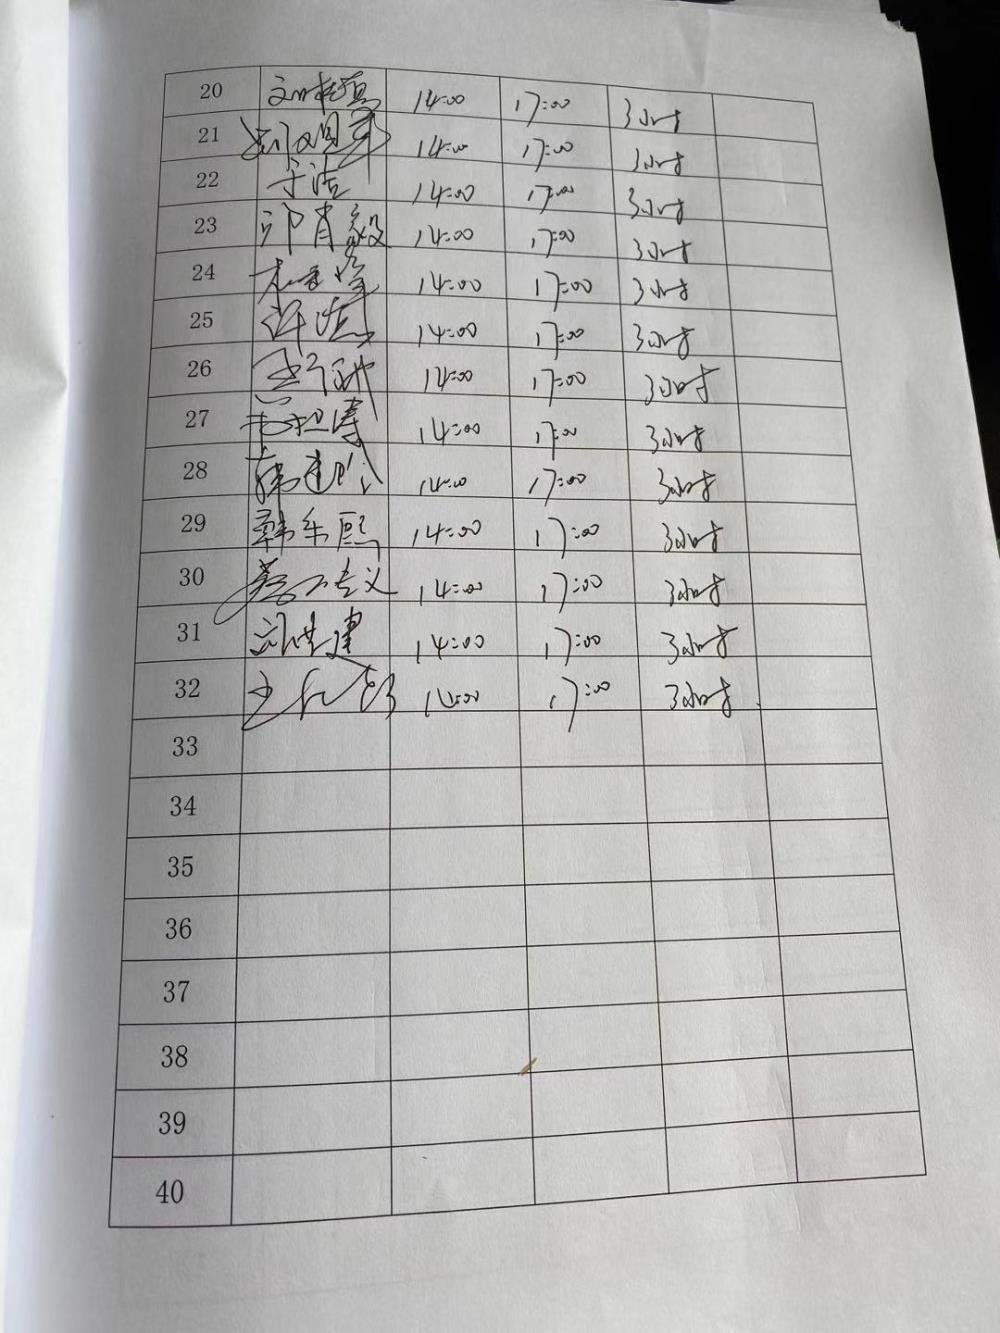 20 14:00 17:00 3小时
21 14:00 17:00 3小时
22 于浩 14:00 17:00 3小时
23 邱肖毅 14:00 17:00 3小时
24 14:00 17:00 3小时
25 14:00 17:00 3小时
26 14:00 17:00 3小时
27 14:00 17:00 3小时
28 14:00 17:00 3小时
29 韩东熙 14:00 17:00 3小时
30 14:00 17:00 3小时
31 14:00 17:00 3小时
32 14:00 17:00 3小时
33
34
35
36
37
38
39
40